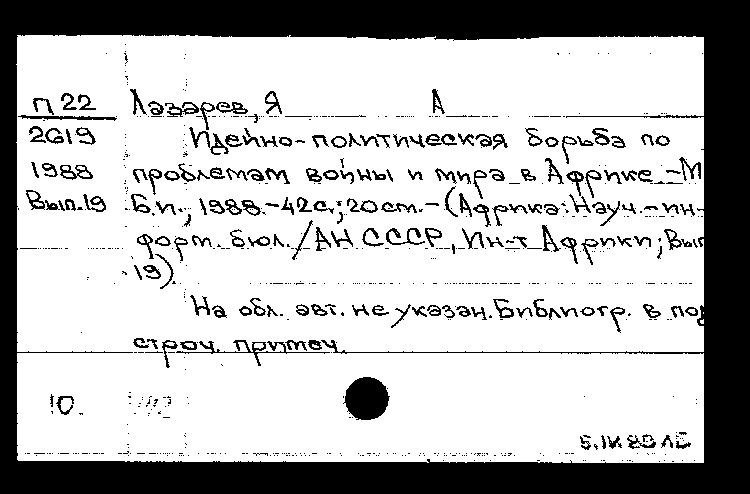 П 22 Лазарев, Я А
2619 Идейно-политическая борьба по
1988 проблемам войны и мира в Африке.-М
Вып.19 Б.и., 1988.-42с.; 20см.-(Африка: Науч.-ин-
форм. бюл./АН СССР, Ин-т Африки; Вып
19)
На обл. авт. не указан. Библиогр. в под
строч. примеч.
10.